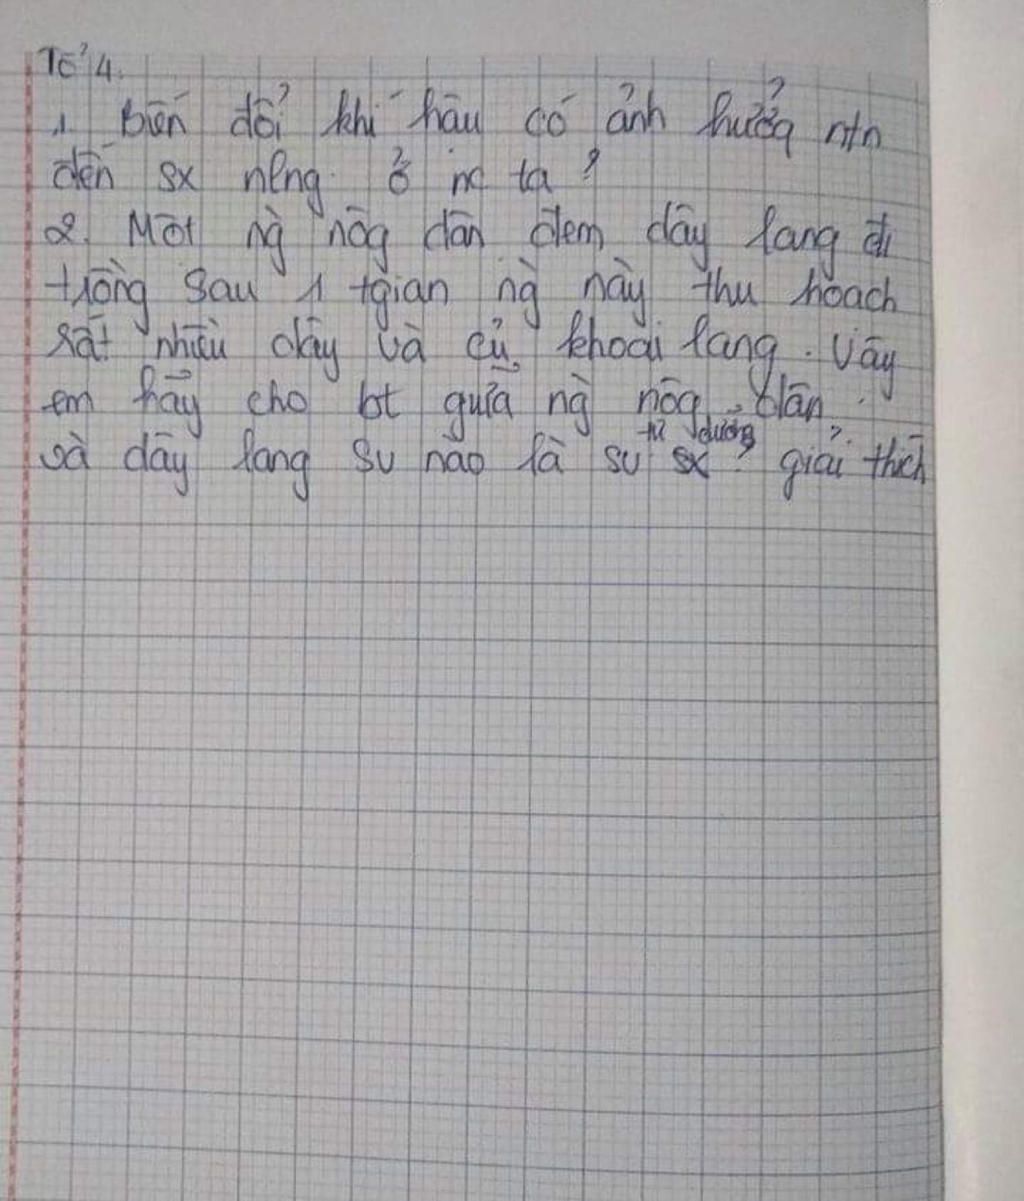 Tổ 4.
1. Biến đổi khí hậu có ảnh hưởng ntn
đến sx nông ở nc ta?
2. Một ng` nôg dân đem dây lang đi
trồng sau 1 tgian ng` này thu hoạch
rất nhiều dây và củ khoai lang. Vậy
em hãy cho bt giữa ng` nôg dân
và dây lang sv nào là sv tự dưỡng? giải thích